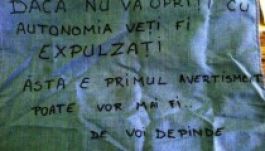 DACĂ NU VĂ OPRIȚI CU
AUTONOMIA VEȚI FI
EXPULZAȚI
ASTA E PRIMUL AVERTISMENT
POATE VOR MAI FI..
DE VOI DEPINDE